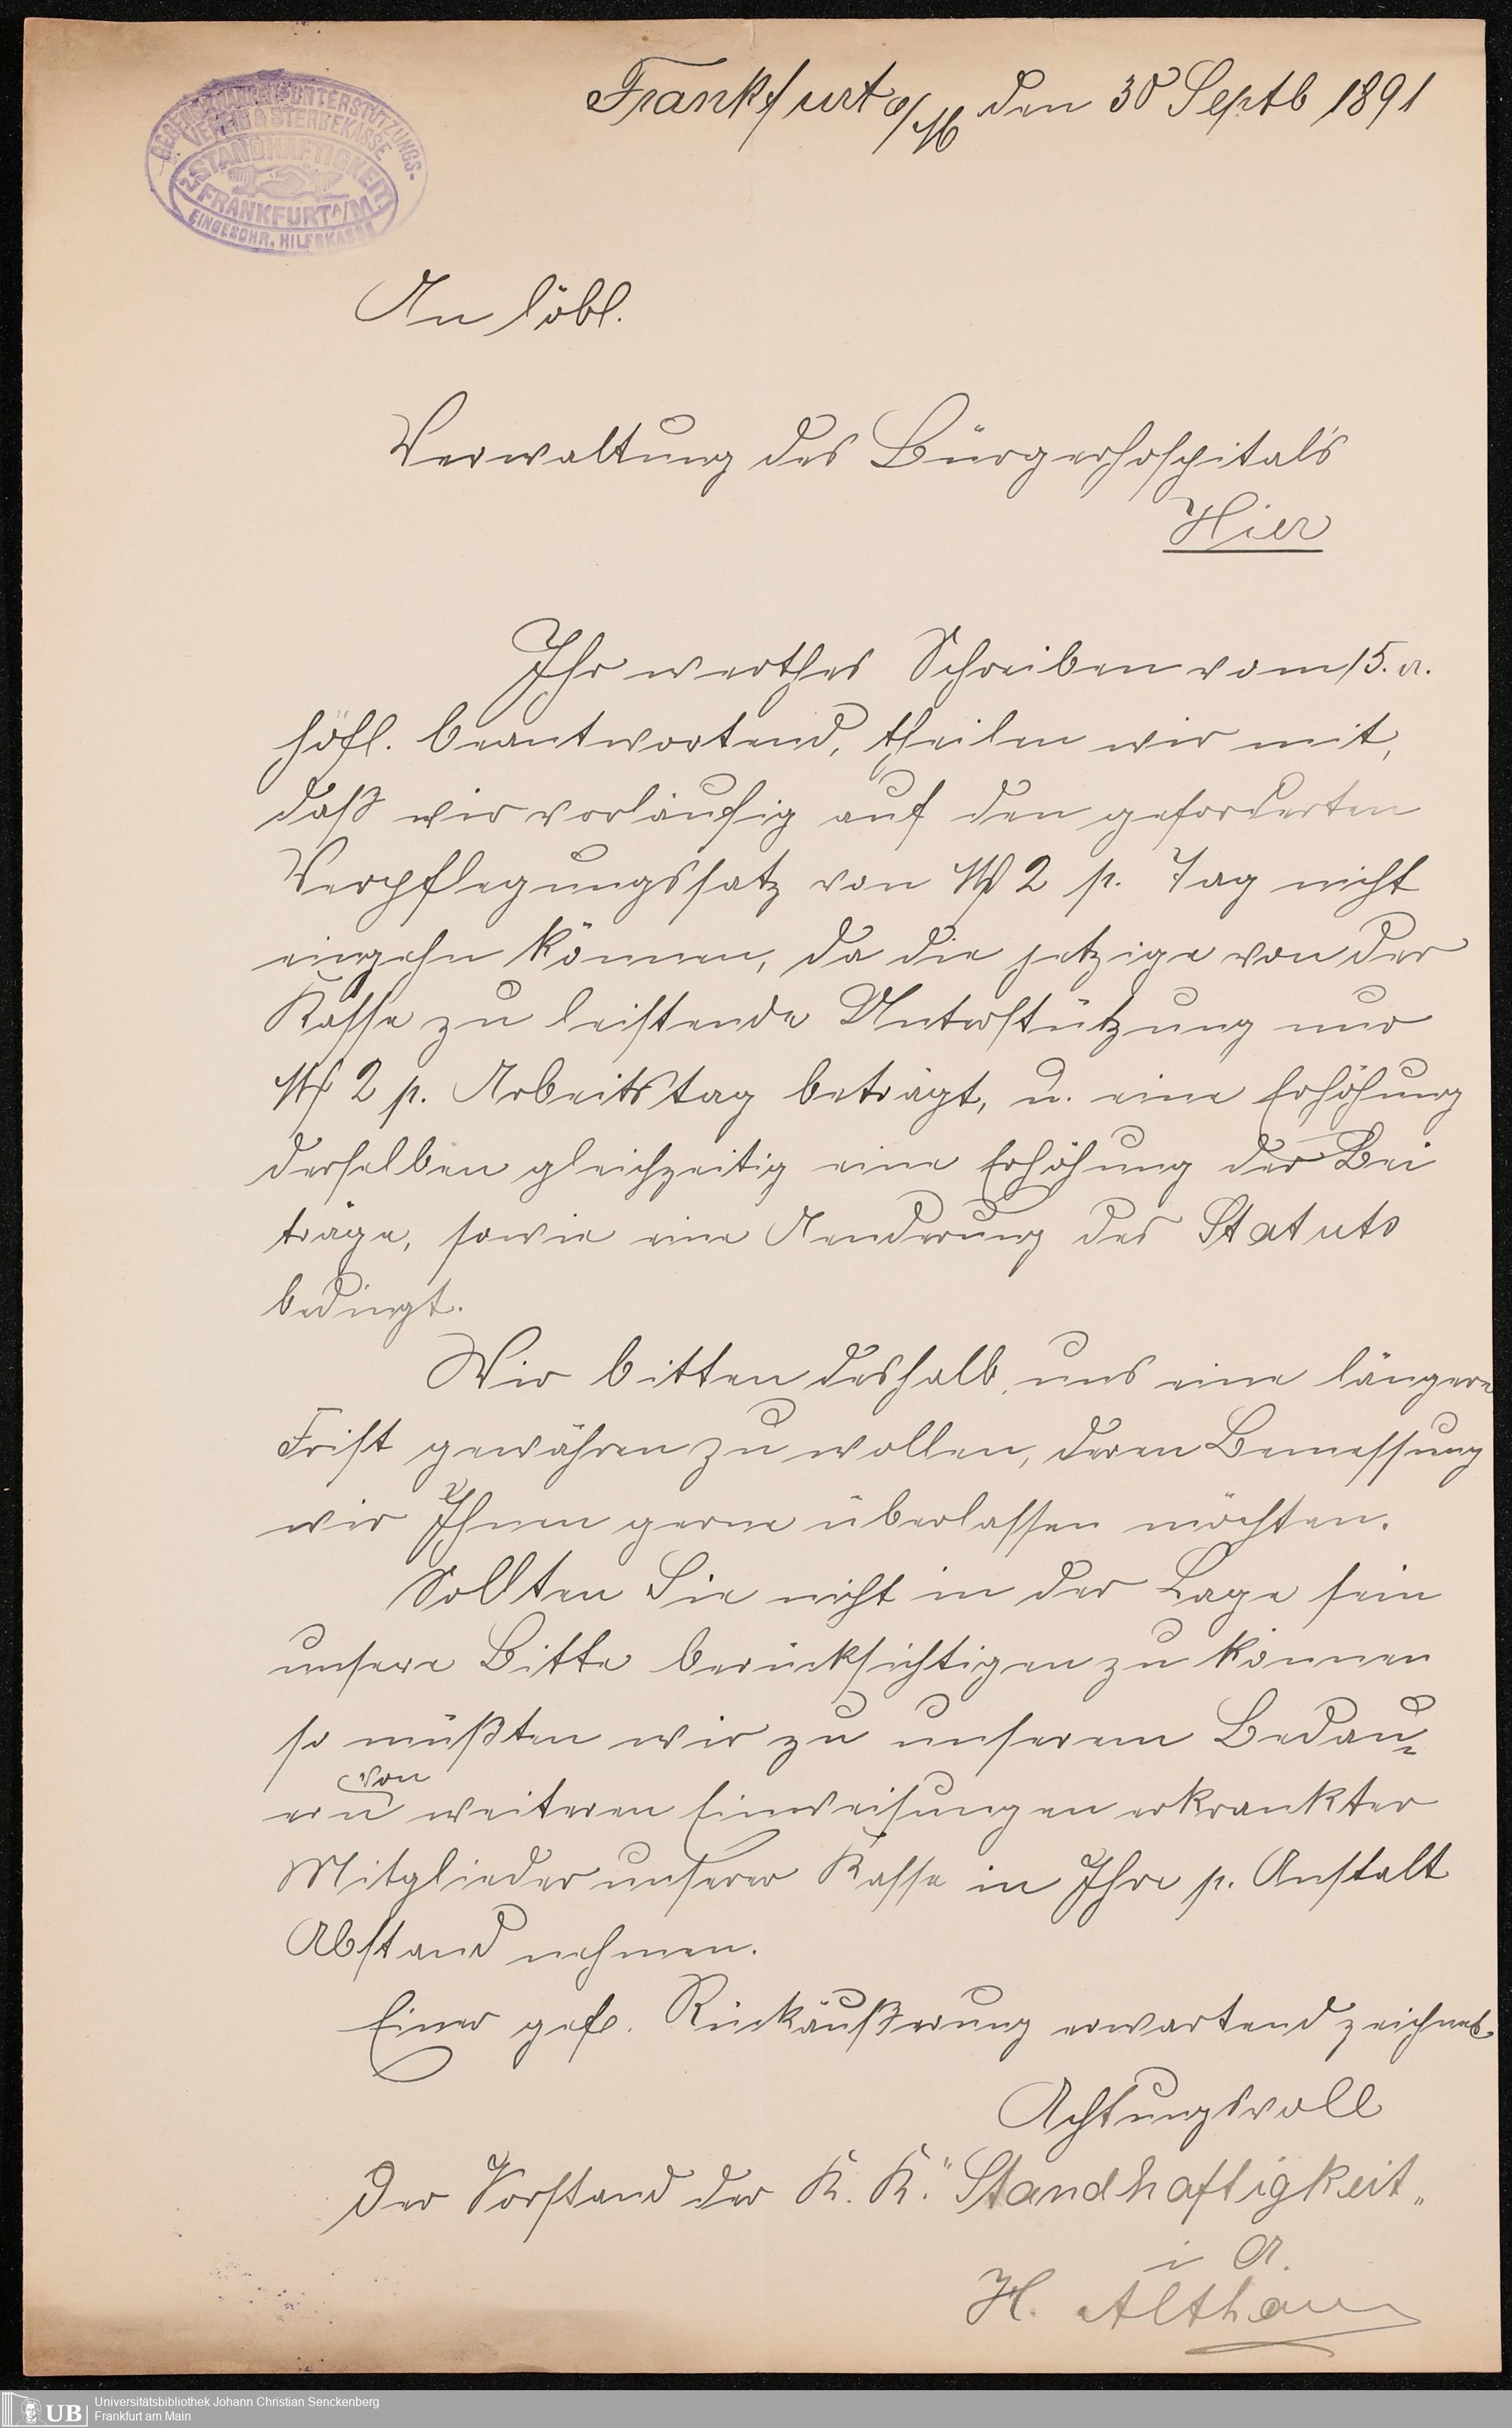 Frankfurt a/M den 30 Septb 1891
GEGENS. KRANKEN-UNTERSTÜTZUNGS-
VEREIN & STERBEKASSE
"STANDHAFTIGKEIT"
FRANKFURT A/M.
EINGESCHR. HILFSKASSE
An löbl.
Verwaltung des Bürgerhospitals
Hier
Ihr werthes Schreiben vom 15. a.
höfl. beantwortend, theilen wir mit,
daß wir vorläufig auf den geforderten
Verpflegungssatz von M 2 p. Tag nicht
eingehn können, da die jetzige von der
Kasse zu leistende Unterstützung nur
M 2 p. Arbeitstag beträgt, u. eine Erhöhung
derselben gleichzeitig eine Erhöhung der Bei
träge, sowie eine Aenderung des Statuts
bedingt.
Wir bitten deshalb, uns eine längere
Frist gewähren zu wollen, deren Bemessung
wir Ihnen gerne überlassen möchten.
Sollten Sie nicht in der Lage sein
unsere Bitte berücksichtigen zu können
so müßten wir zu unserem Bedau=
ern von weiteren Einweisungen erkrankter
Mitglieder unserer Kasse in Ihre p. Anstalt
Abstand nehmen.
Einer gefl. Rückäußerung erwartend zeichnet
Achtungsvoll
Der Vorstand der K. K. "Standhaftigkeit"
i A.
H. Althaus
UB
Universitätsbibliothek Johann Christian Senckenberg
Frankfurt am Main